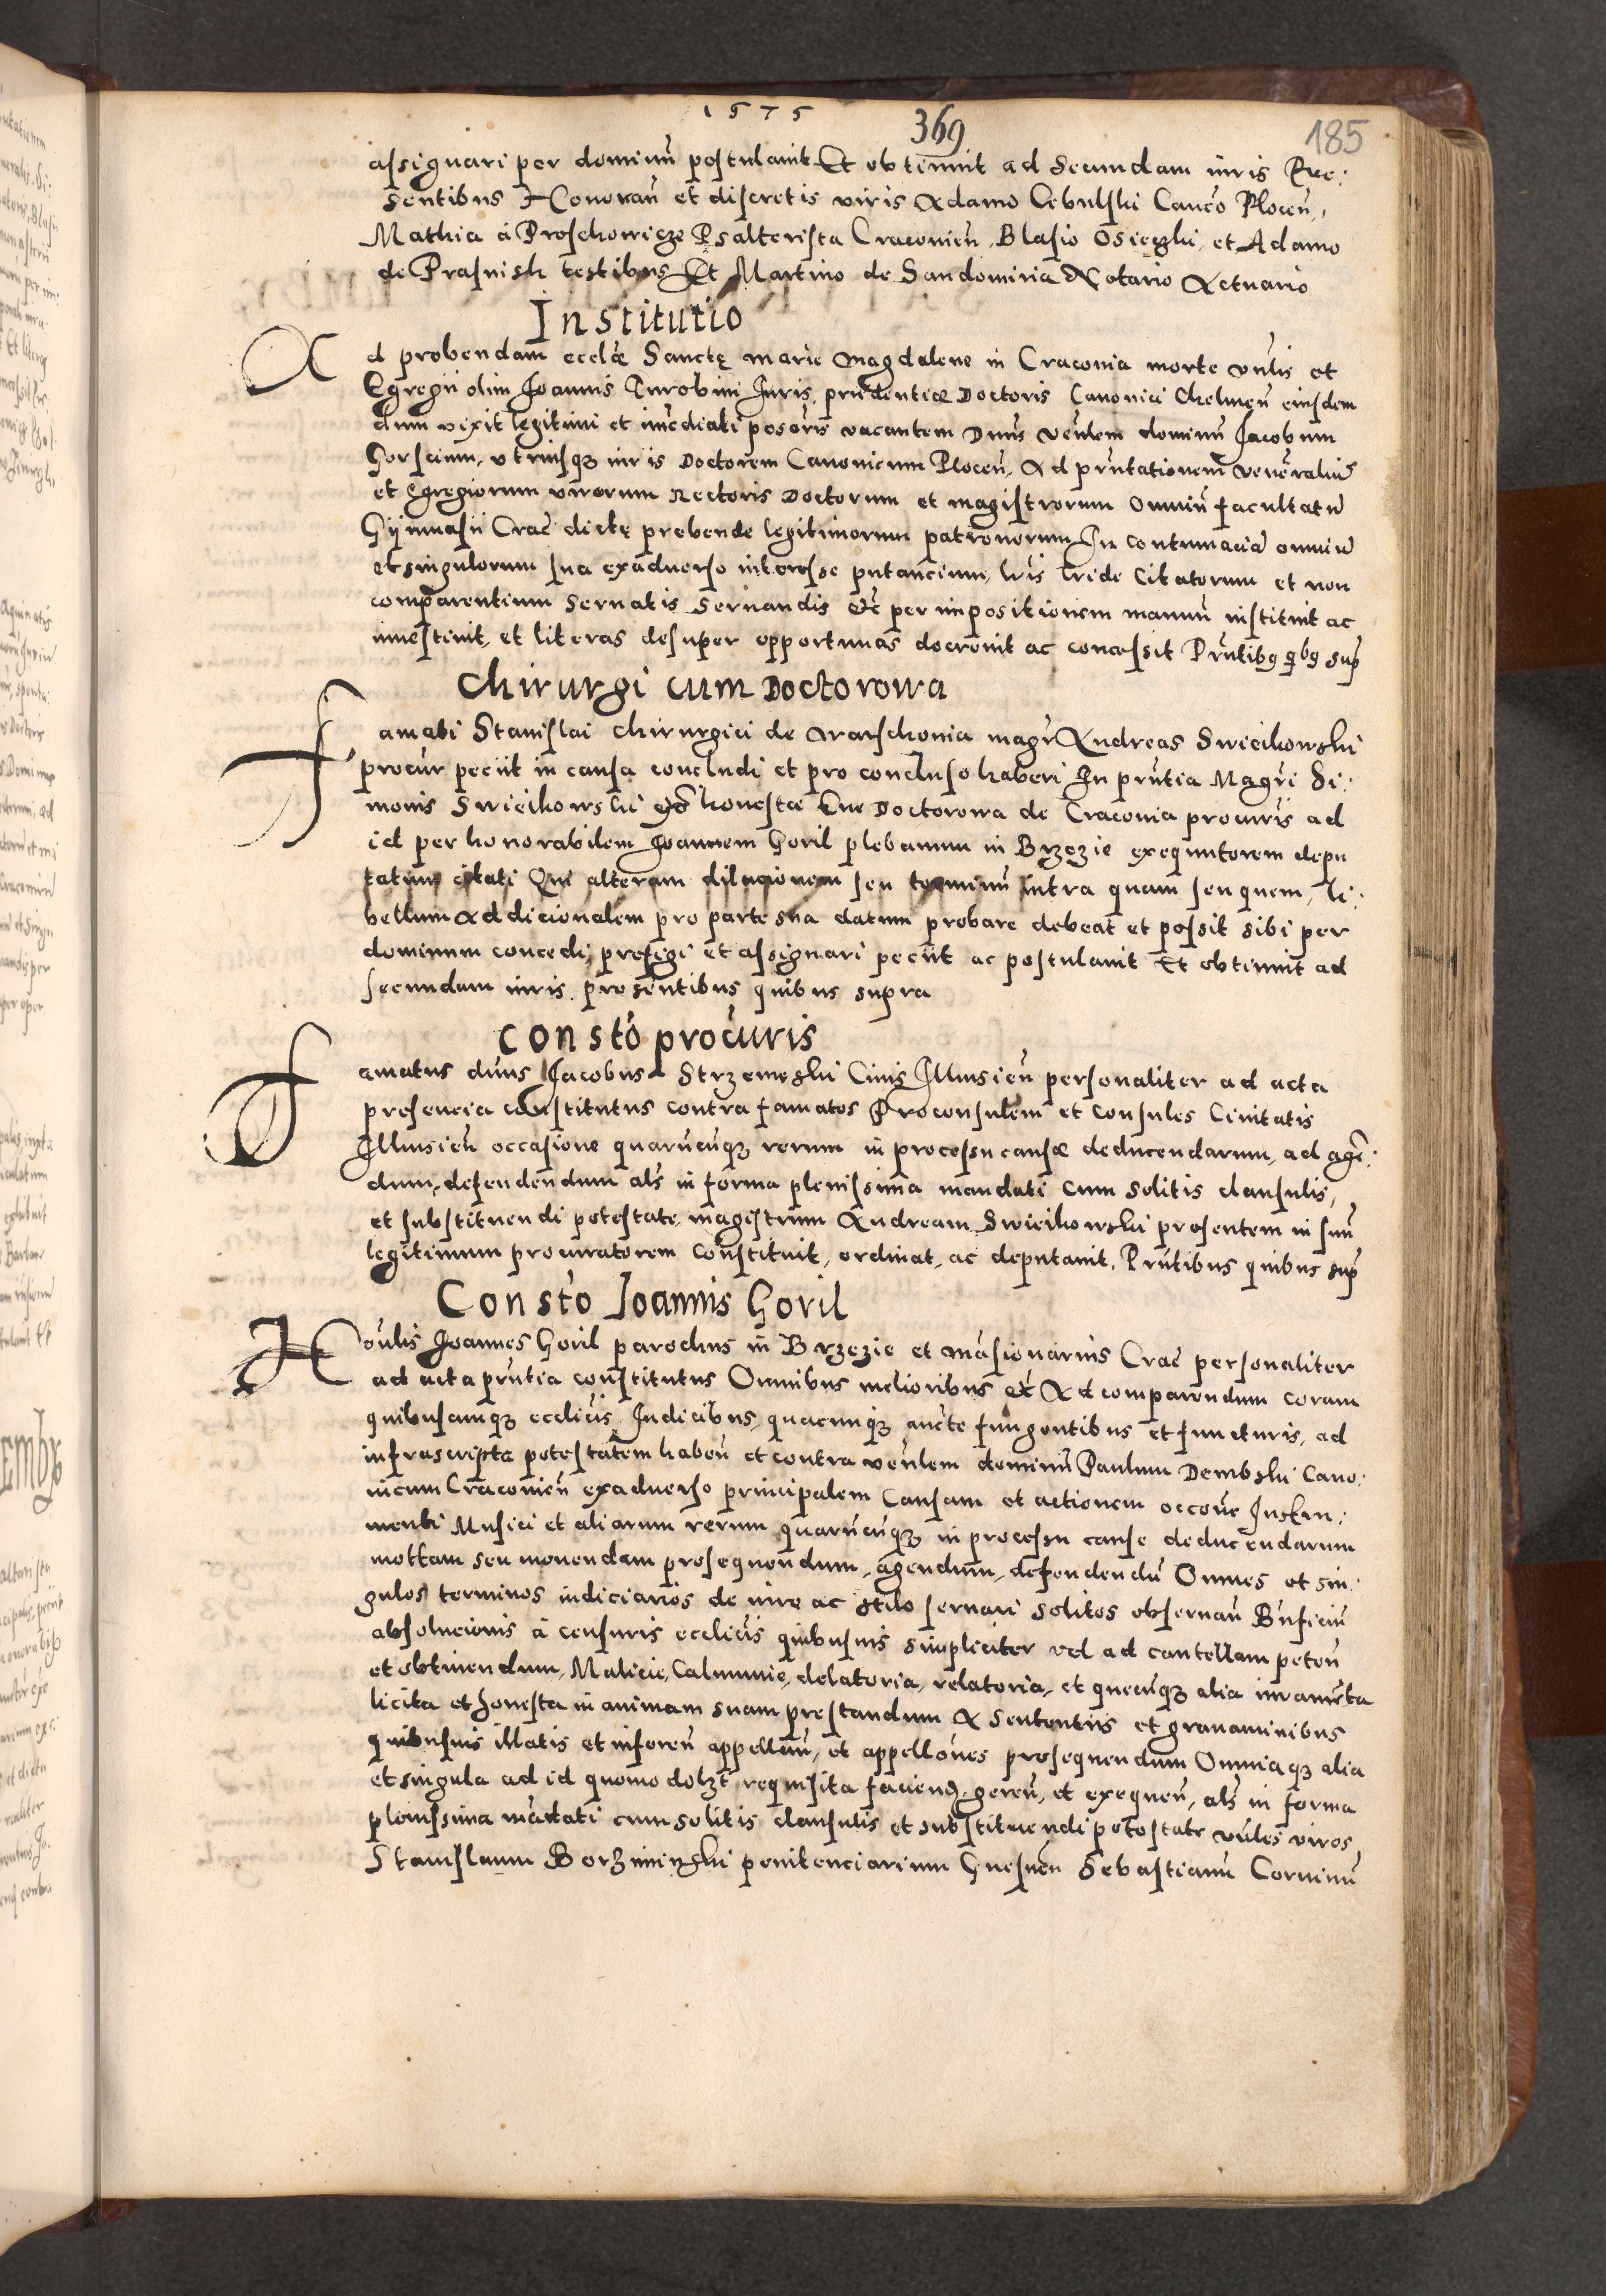 1575
369
185
assignari per dominũ postulauit Et obtinuit ad secundam iuris Pre:
sentibus Honoran̄ et discretis viris Adamo Cebulski Canc̃o Plocen̄,
Mathia à Proschowicze Psalterista Cracouien̄, Blasio Osieczki, et Adamo
de Prasnish testibus Et Martino de Sandomiria Notario Actuario
Institutio
Ad probendam eccliæ Sanctę marie Magdalene in Cracouia morte vn̄lis et
Egregii olim Joannis Turobini Juris prudentiæ Doctoris Canonici Chelmen̄ eiusdem
dum vixit legitimi et im̄ediati posōris vacantem Dn̄us ven̄lem dominũ Jacobum
Gorscium, vtriusq₃ iuris Doctorem Canonicum Plocen̄, Ad pn̄tationem venerabiliũ
et Egregiorum virorum Rectoris Doctorum et magistrorum Omniũ facultatũ
Gÿmnasii Crac̄ dictę prebende legitimorum patronorum In contumaciã omniũ
et singulorum sua exaduerso interesse putancium, lr̄is lride Citatorum et non
comparentium seruatis seruandis etc̄ per impositionem manuũ instituit ac
inuestiuit, et literas desuper opportunas decreuit ac concessit Pn̄tibg qbg sup̄
Chirurgi cum Doctorowa
Famati Stanislai chirurgici de Warschouia magr̄ Andreas Swieikowski
procur̄ peciit in causa concludi et pro concluso haberi In pn̄tia Magr̄i Si:
monis Swieikowski honestæ Eue Doctorowa de Cracouia procur̄is ad
id per honorabilem Joannem Goril plebanum in Brzezie exequutorem depu
tatum citati Qui alteram dilacionem seu terminũ intra quam seu quem, li:
bellum Addicionalem pro parte sua datum probare debeat et possit sibi per
dominum concedi, prefigi et assignari peciit ac postulauit Et obtinuit ad
secundam iuris presentibus quibus supra
Constō procūris
Famatus dn̄us Jacobus Strzemeski Ciuis Illkusien̄ personaliter ad acta
presencia constitutus contra famatos Proconsulem et Consules Ciuitatis
Illkusien̄ occasione quarũcuq₃ rerum in processu causæ deducendarum, ad agē:
dum, defendendum als̄ in forma plenissima mandati cum solitis clausulis,
et substituendi potestate magistrum Andream Swieikowski presentem in suũ
legitimum procuratorem constituit, ordinat, ac deputauit, Pn̄tibus quibus sup̄
Constō Joannis Goril
Hon̄lis Joannes Goril parochus in Brzezie et mãsionarius Crac̄ personaliter
ad acta pn̄tia constitutus Omnibus melioribus etc̄ Ad comparendum coram
quibuscunq₃ eccliĉis Iudicibus, quacunq₃ aucte fungentibus et functuris, ad
infrascripta potestatem haben̄ et contra ven̄lem dominũ Paulum Dembski Cano:
nicum Cracouien̄ exaduerso principalem Causam et actionem occōne Instru:
menti Musici et aliarum rerum quarũcuq₃ in processu cause deducendarum
mottam seu mouendam prosequendum, agendum, defendendũ Omnes et sin:
gulos terminos iudiciarios de iure ac stilo seruari solitos obseruan̄ Bn̄ficiũ
absolucionis à censuris eccliĉis quibusuis simpliciter vel ad cautellam peten̄
et obtinendum, Malicie, Calumnie, delatoria, relatoria, et quecuq₃ alia iuramēta
licita et honesta in animam suam prestandum A sententiis et grauaminibus
quibusuis illatis et inferen̄ appellan̄, et appellōnes prosequendum Omniaq₃ alia
et singula ad id quomodolz̄t requisita faciend̄, geren̄, et exequen̄, als̄ in forma
plenissima mãdati cum solitis clausulis et substituendi potestate vn̄les viros
Stanislaum Borziminski penitenciarium Gnesnen̄ Sebastianũ Coruinũ